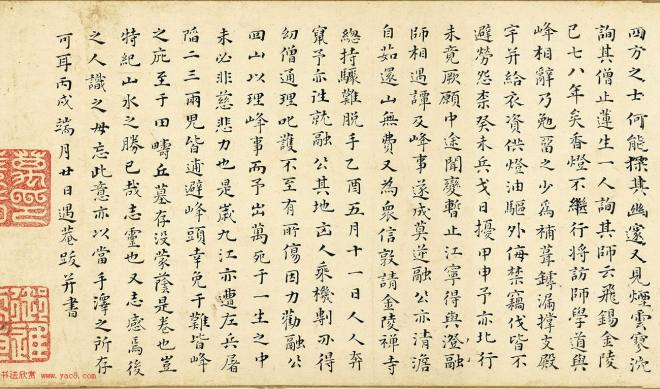 四方之士何能探其幽邃又見煙雲寥沈
詢其僧止蓮生一人詢其師云飛錫金陵
已七八年矣香燈不繼行將訪師學道與
峰相辭乃勉留之少為補葺罅漏撐支殿
宇并給衣資供燈油驅外侮禁竊伐皆不
避勞怨柰癸未兵戈日擾甲申予亦北行
未竟厥願中途聞變暫止江寧得與澄融
師相遇譚及峰事遂成莫逆融公亦清澹
自如還山無費又為衆信敦請金陵禪寺
總持驟難脫手乙酉五月十一日人人奔
竄予亦往就融公其地亡人乘機剸刃得
幼僧通理叱護不至有所傷因力勸融公
回山以理峰事而予出萬死于一生之中
未必非慈悲力也是歲九江亦遭左兵屠
陷二三兩兒皆逋避峰頭幸免于難皆峰
之庇至于田疇丘墓存没蒙蔭是卷也豈
特紀山水之勝已哉志靈也又志感焉後
之人識之毋忘此意亦以當手澤之所存
可耳丙戌端月廿日遇菴跋并書
书法欣赏
www.yac8.com